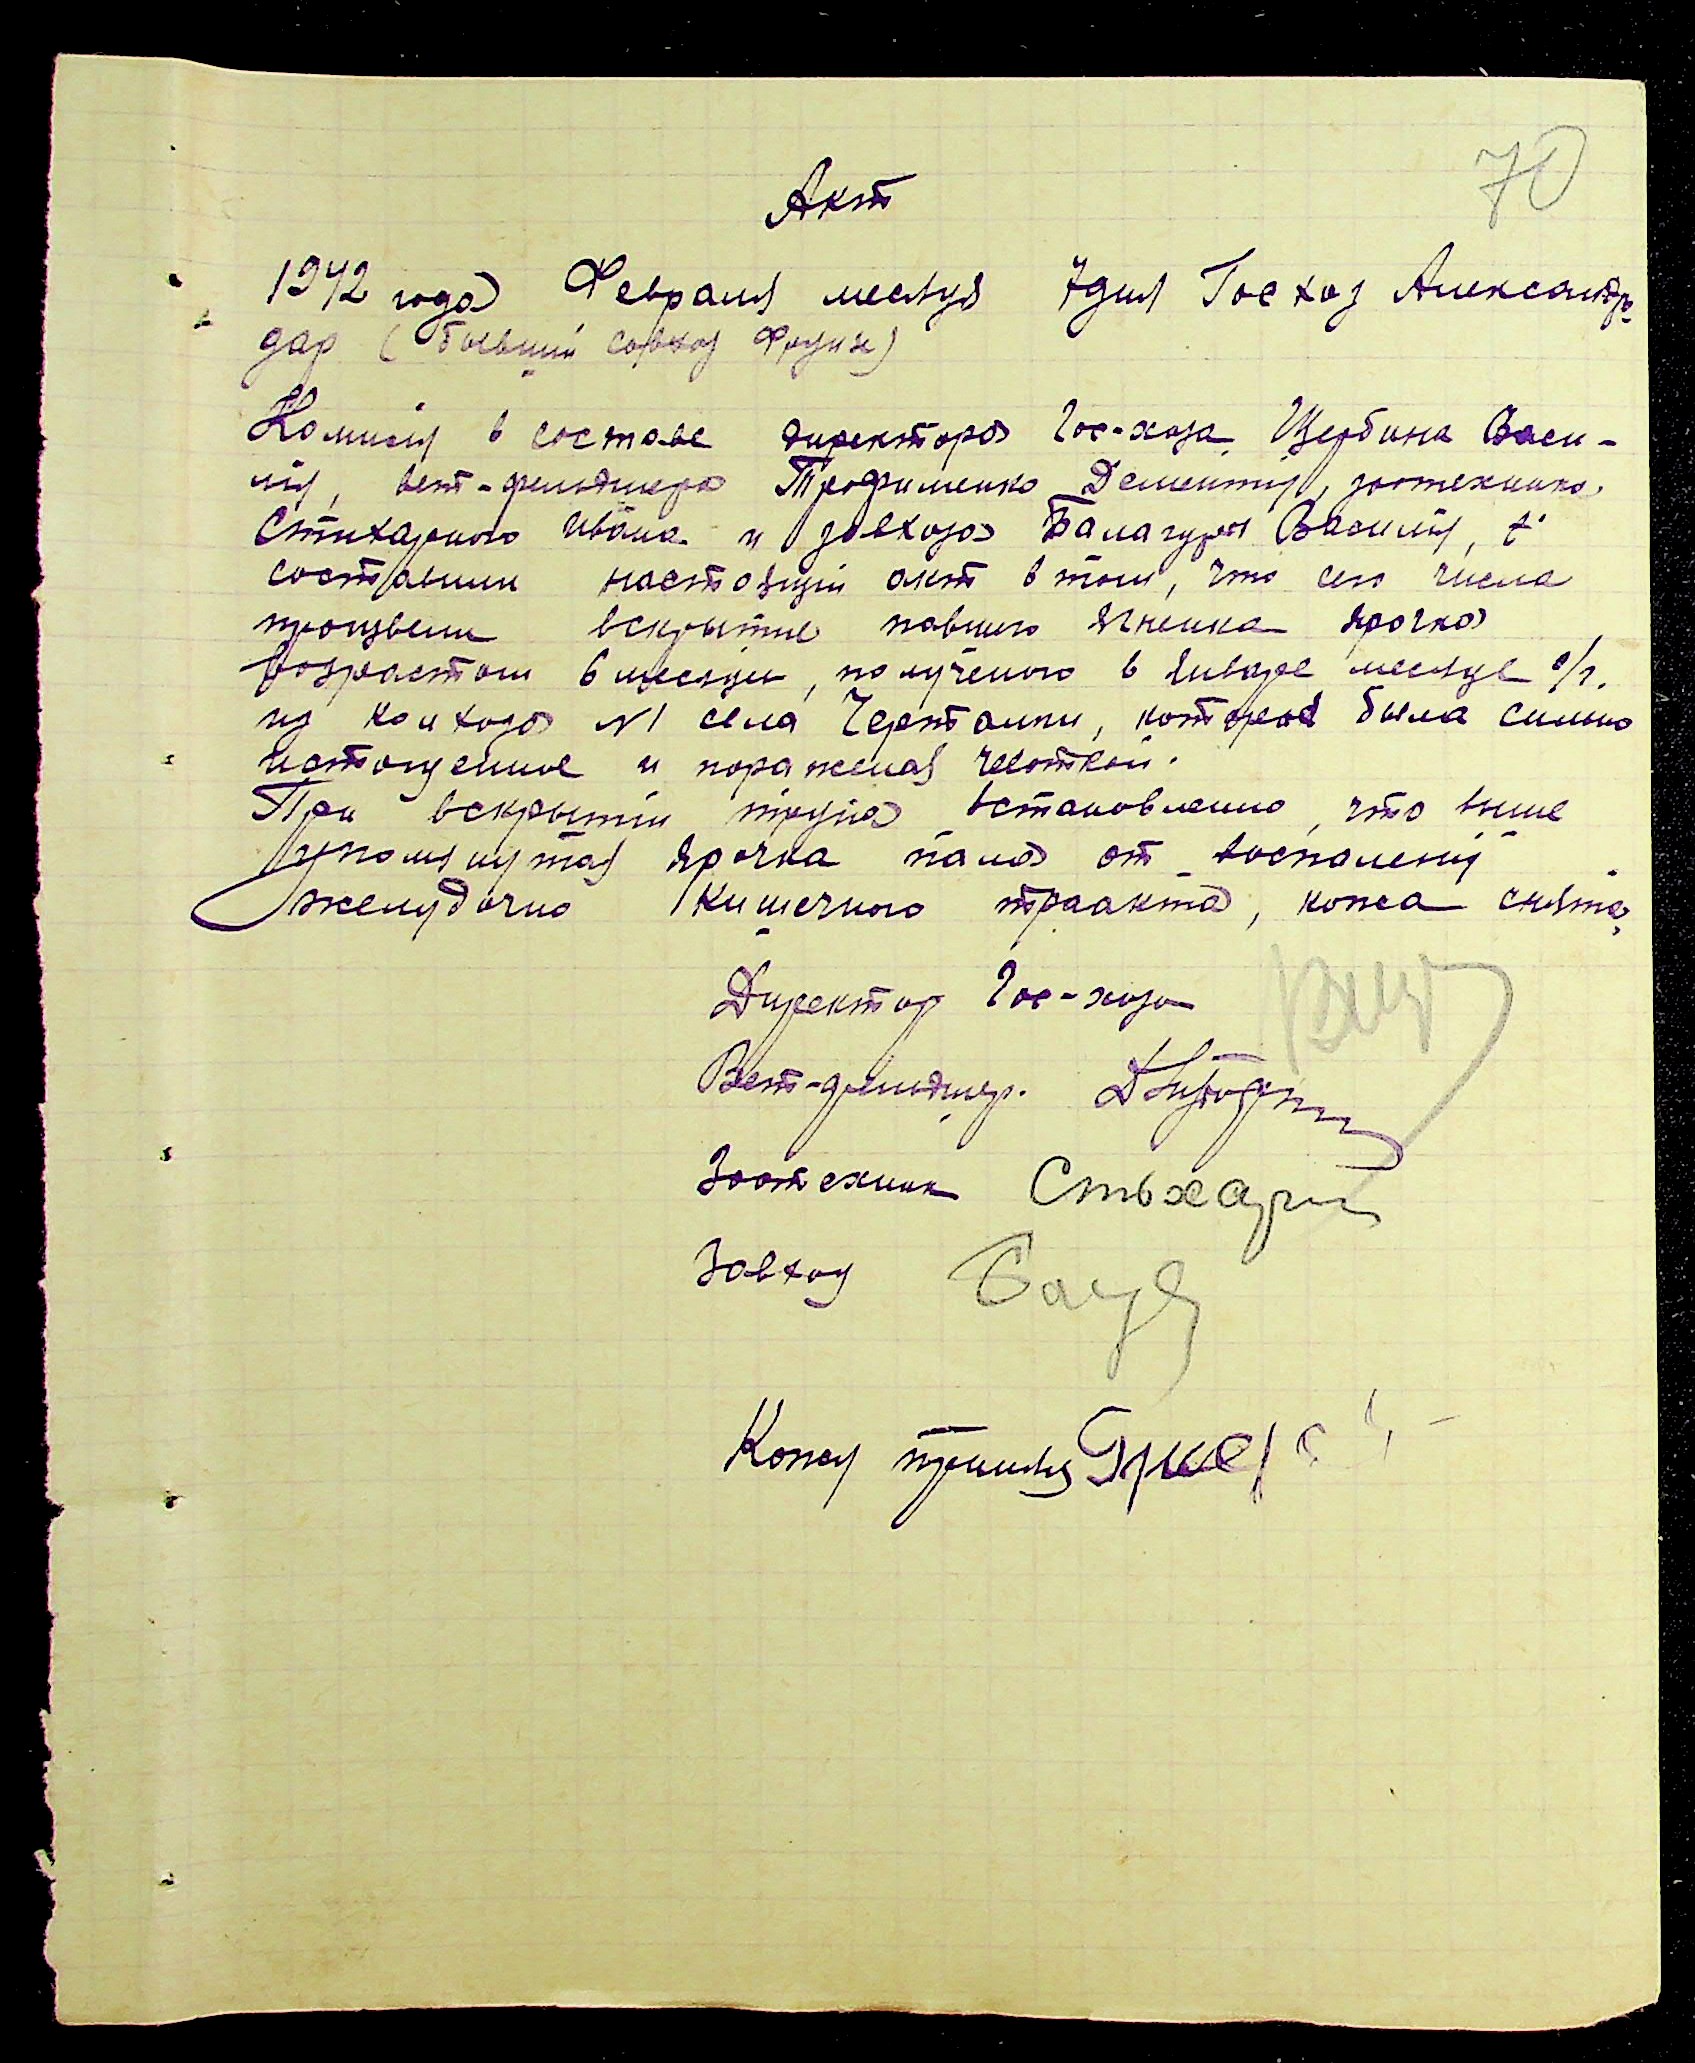 70
Акт
1942 года Февраля месяца 7 дня Госхоз Александр-
дар (бывший совхоз Фрунзе)
Комисия в составе директора Гос-хоза Щербина Васи-
лия, вет-фельдшера Трофименко Дементия, зоотехника
Стихарного Ивана и завхоза Балагура Василия,
составили настоящий акт в том, что сего числа
произвели вскрытие павшего ягненка ярочка
возрастом 6 месяцы, полученого в январе месяце с/г.
из колхоза №1 села Чертомлик, которая была сильно
истощенное и пораженая чесоткой.
При вскрытии трупа встановленно, что выше
упомянутая ярочка пала от воспаления
желудочно кишечного траакта, кожа снята,
Директор Гос-хоза
Вет-фельдшер.
Зоотехник Стыхарн
Завхоз
Кожу принял